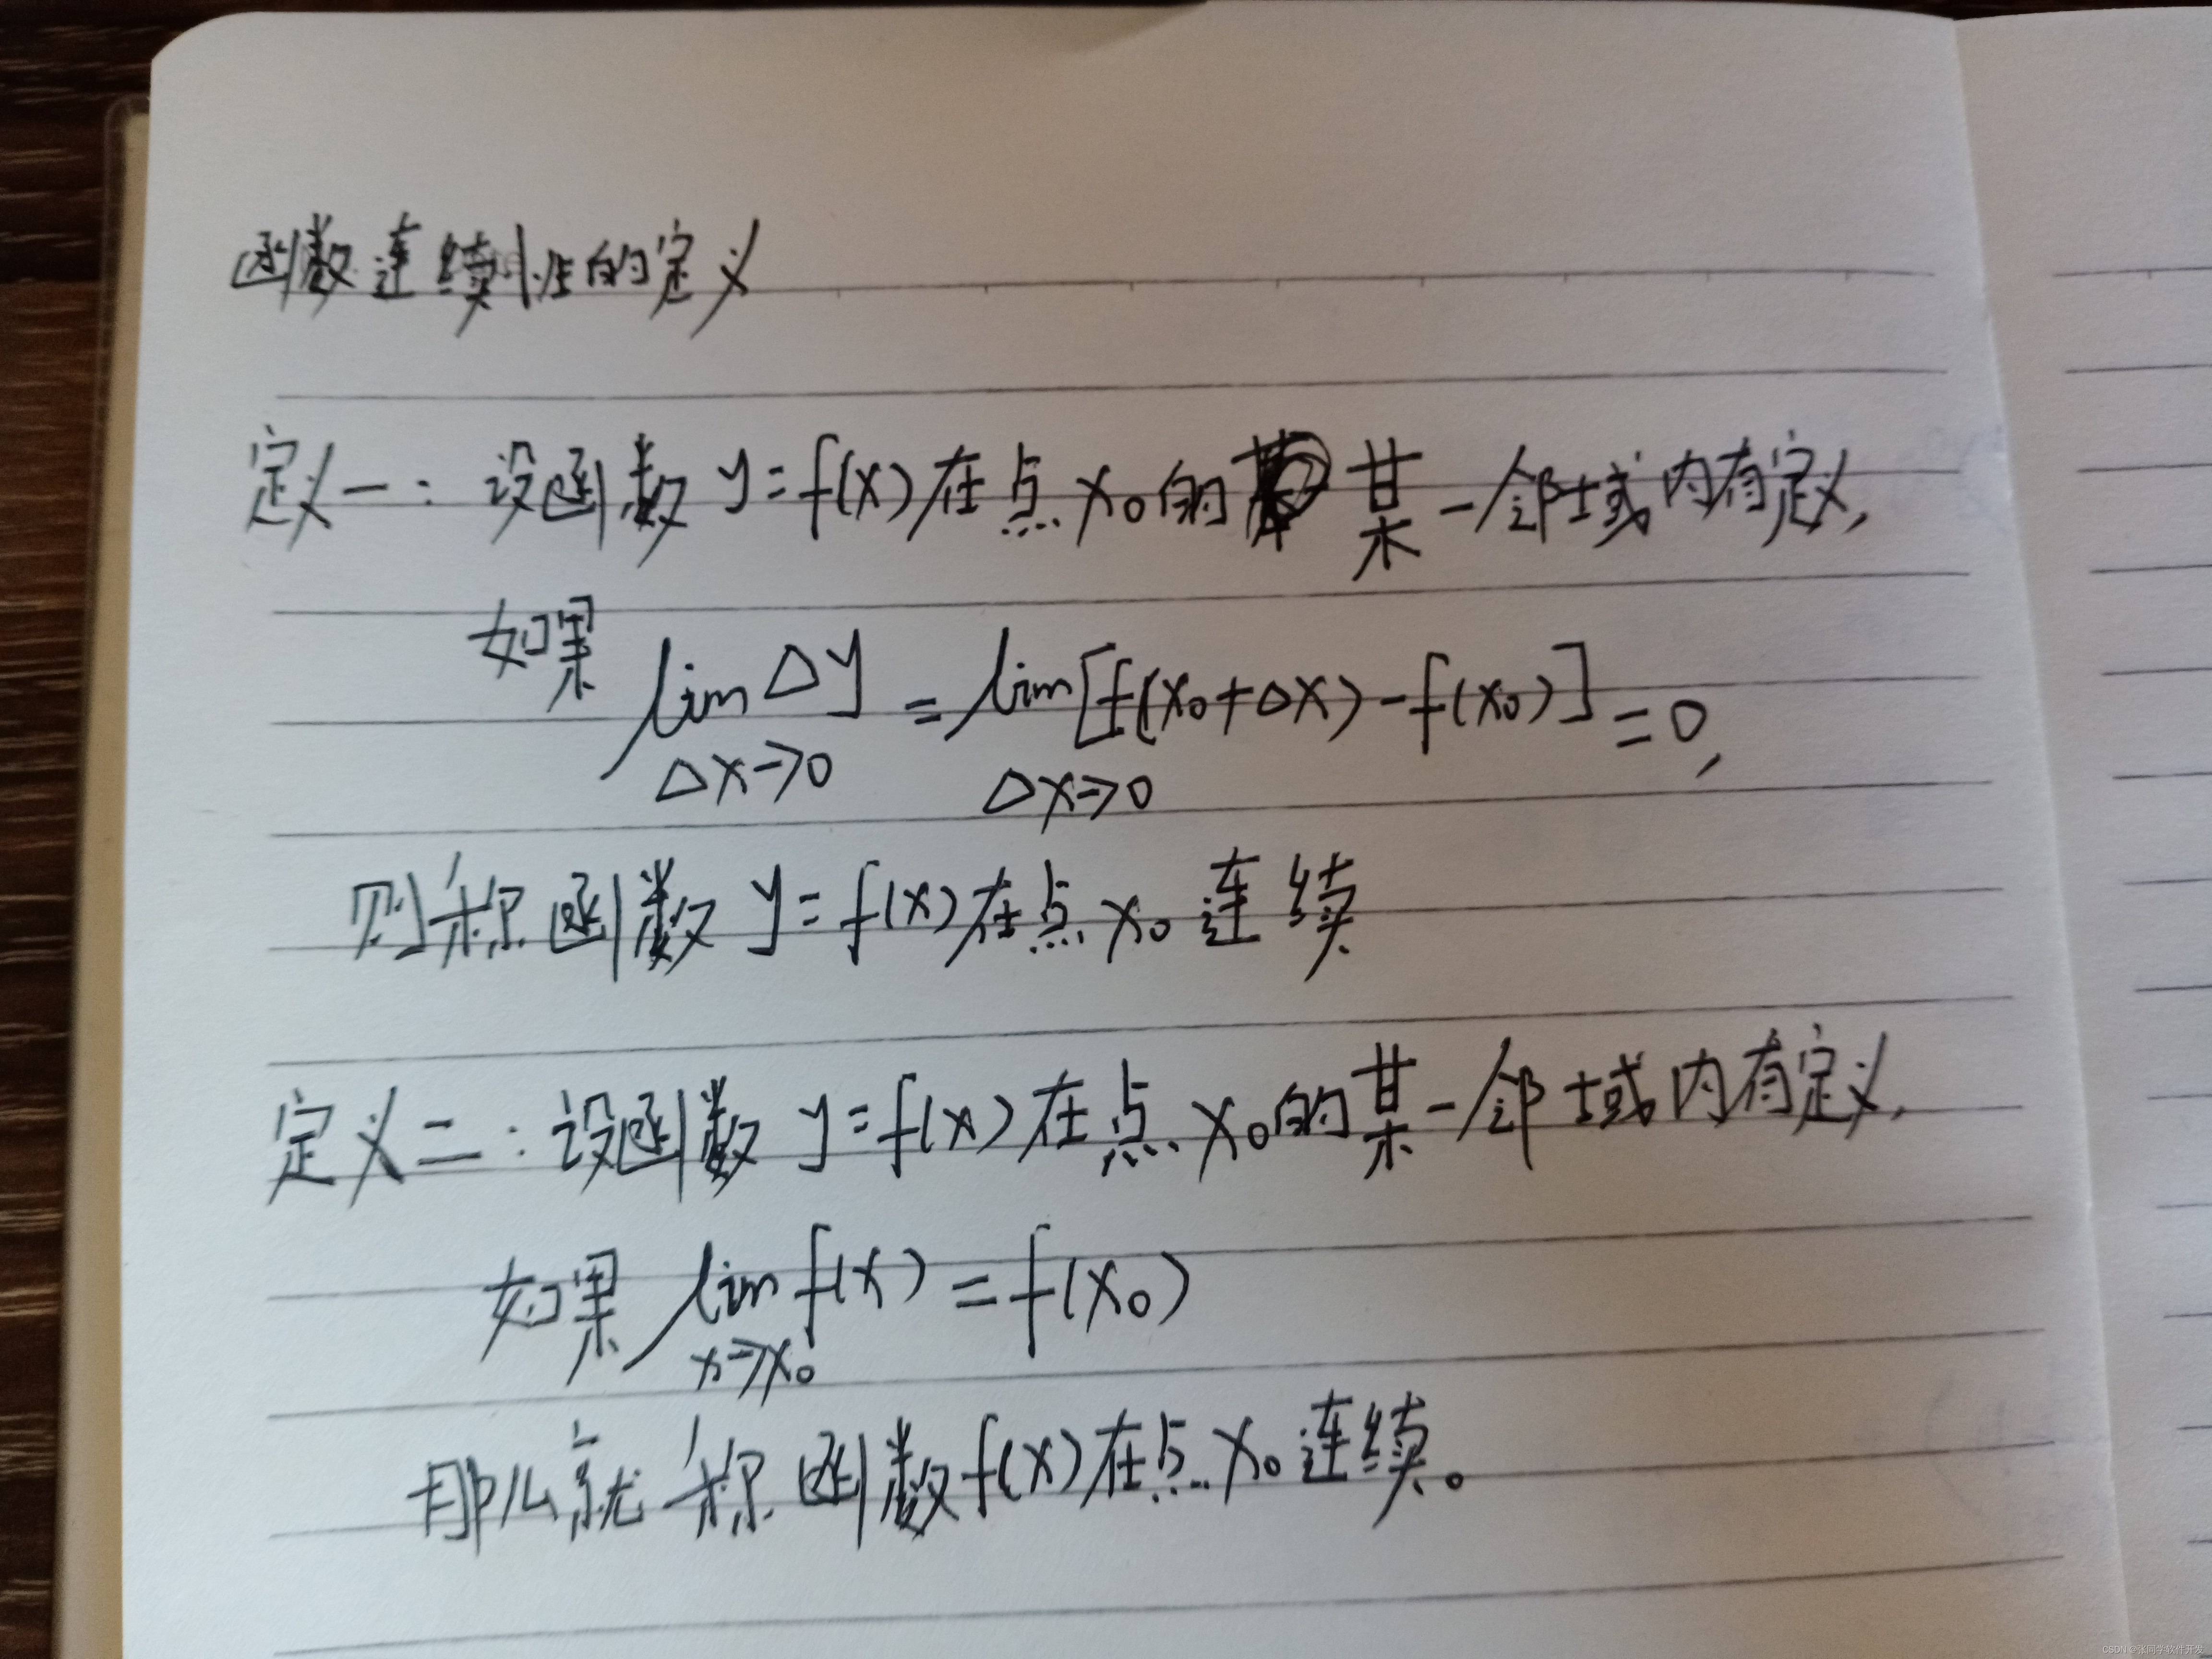 函数连续性的定义
定义一：设函数 y=f(x)在点 x₀ 的某一邻域内有定义,
如果 lim Δy = lim [f(x₀+Δx)-f(x₀)] = 0,
Δx→0 Δx→0
则称函数 y=f(x)在点 x₀ 连续
定义二：设函数 y=f(x)在点 x₀的某一邻域内有定义,
如果 lim f(x) = f(x₀)
x→x₀
那么就称函数f(x)在点 x₀ 连续。
CSDN @张同学软件开发